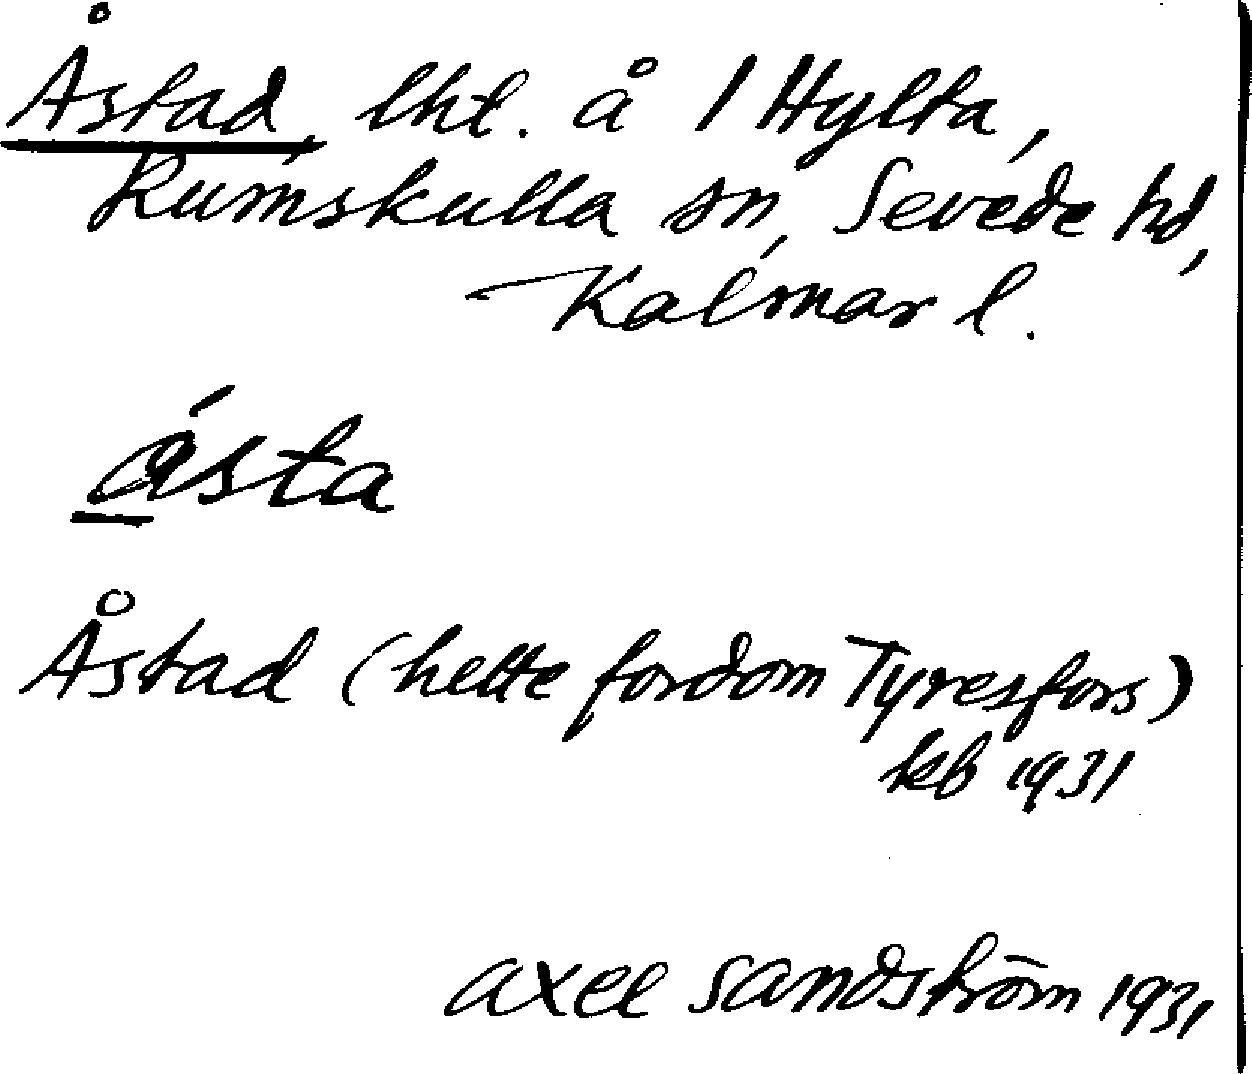 Åstad, lht. å 1 Hylta,
Rumskulla sn, Sevede hd,
Kalmar l.
ásta
Åstad (hette fordom Tyresfors)
kb 1931
Axel Sandström 1931